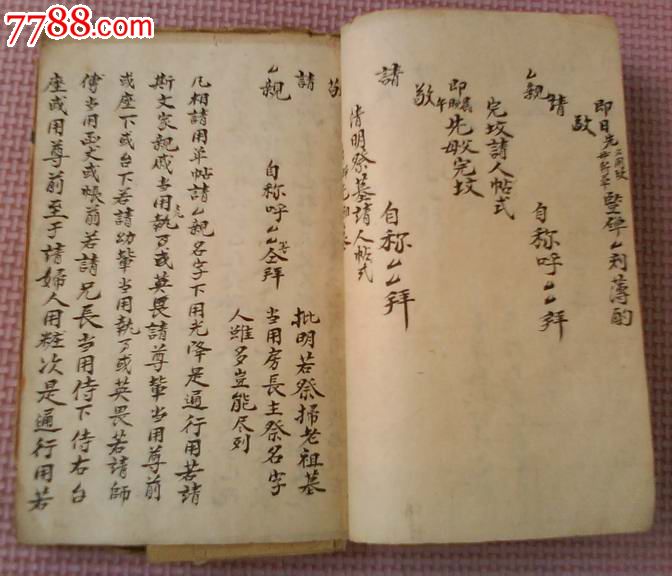 7788.com
即日先豎碑厶刻薄酌
敬
請
厶親 自称呼厶厶拜
完坟請人帖式
即午先父母完坟
敬
請 自称厶厶拜
清明祭墓請人帖式
敬
請
厶親 自称呼厶厶等仝拜
批明若祭掃老祖墓
当用房長主祭名字
人雖多豈能尽列
凡相請用单帖請厶親名字下用光降是通行用若請
斯文家親戚当用執或英畏請尊輩当用尊前
或座下或台下若請幼輩当用執或英畏若請師
傅当用函丈或帳前若請兄長当用侍下侍右台
座或用尊前至于請婦人用粧次是通行用若